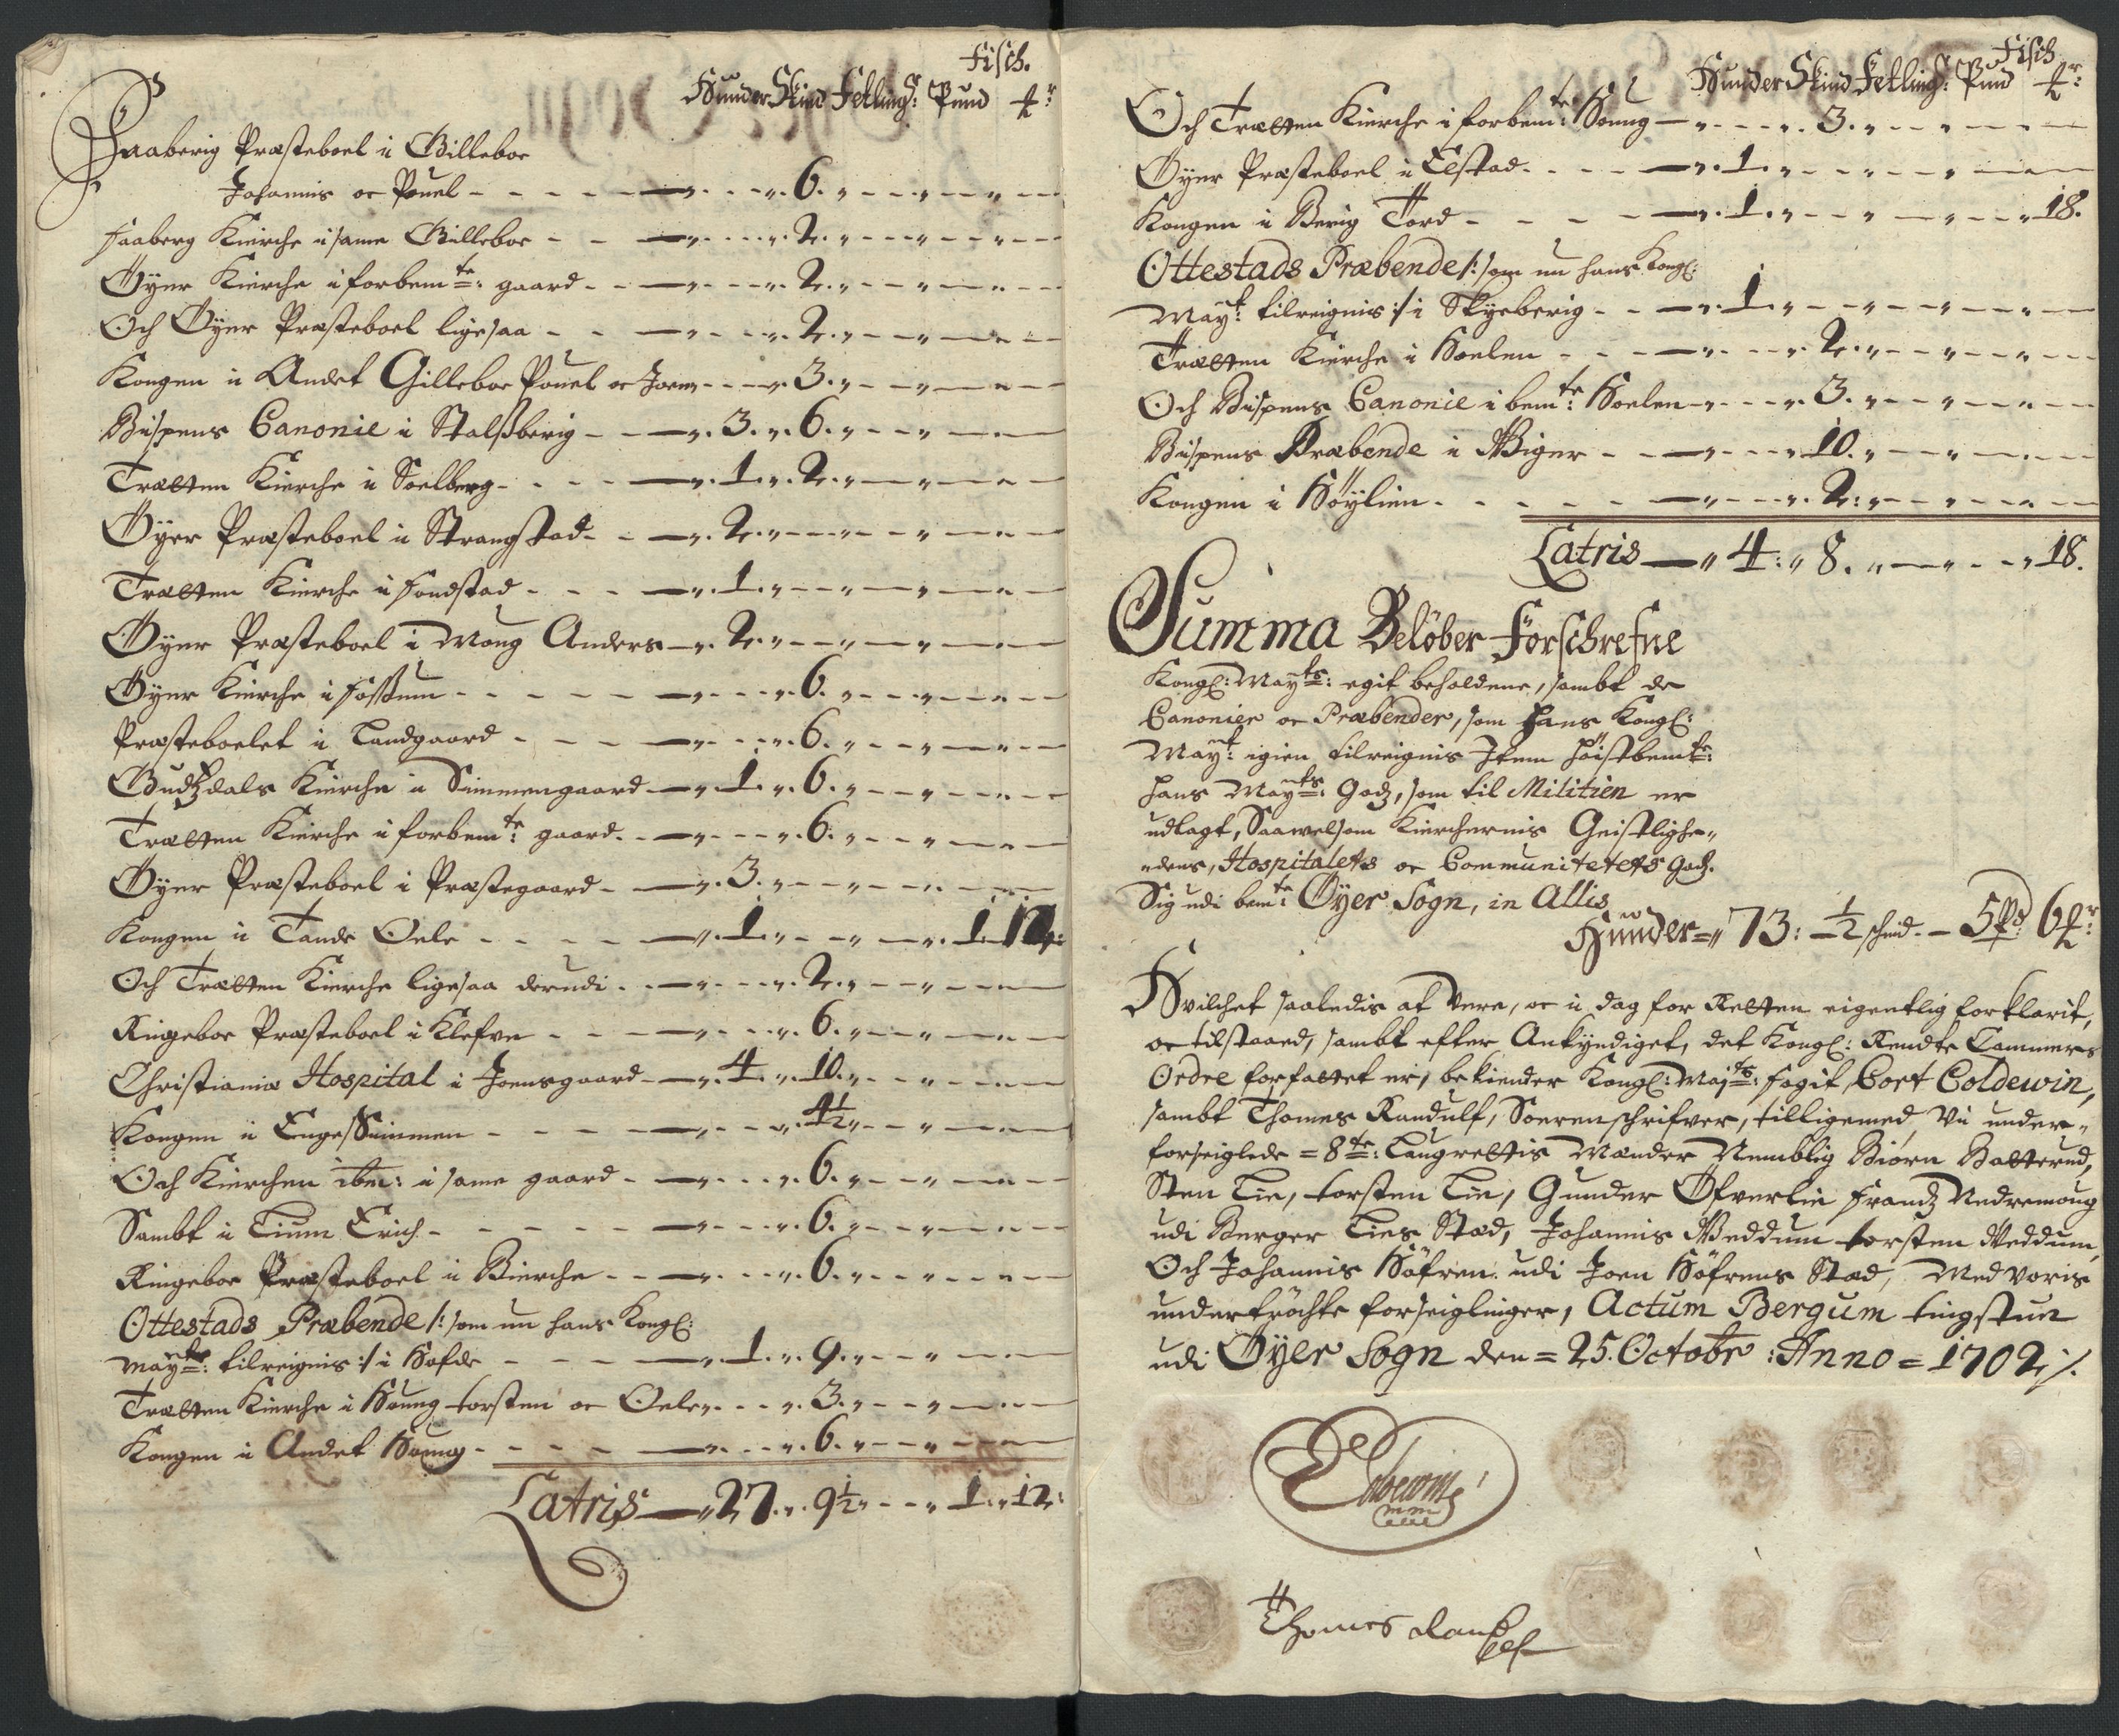 Fisch.
Hunder Skind Fetling: Pund ꝉr:
Faaberig Præsteboel i Gilleboe
Johannis oc Pouel - - - - 6.
Faaberg Kierche i same Gilleboe - - 2.
Øyer Kierche i forbemte: gaard - - 2.
Och Øyer Præsteboel ligesaa - - 2.
Kongen i Andet Gilleboe Pouel oc Joen - - 3.
Bispens Canonie i Stalsberig - - 3. 6.
Trætten Kierche i Soelberg - - - 1. 2.
Øyer Præsteboel i Strangstad - - 2.
Trætten Kierche i - - - 1.
Øyer Præsteboel i Moug Anders - 2.
Øyer Kierche i Fossum - - - - 6.
Præsteboelet i Landgaard - - - 6.
Gudzdals Kierche i Simmengaard - 1. 6.
Trætten Kierche i forbemte: gaard - - 6.
Øyer Præsteboel i Præstegaard - 3.
Kongen i Tande Oele - - - - 1. - - 1. 12:
Och Trætten Kierche ligesaa derudi - - 2.
Ringeboe Præsteboel i Klefve - - - 6.
Christiania Hospital i Joensgaard - 4. 10.
Kongen i - - - - 4½
Och Kierchen ibm: i same gaard - - 6.
Sambt i Tium Erich - - - - 6.
Ringeboe Præsteboel i Bierche - - 6.
Ottestads Præbende /: som nu hans Kongl:
Mayts: tilreignis :/ i Hofde - - - 1. 9.
Trætten Kierche i Houug torsten oc Oele - - 3.
Kongen i Andet Houug - - - - 6.
Latris - 27. 9½ - - 1. 12:
Fisch
Hunder Skind Fetling: Pund ꝉr:
Och Trætten Kierche i forbemte: Houug - - 3.
Øyer Præsteboel i Elstad - - - 1.
Kongen i Berig Tord - - - - 1. - - - 18.
Ottestads Præbende /: som nu hans Kongl:
Mayt: tilreignis :/ i Skyeberig - - 1.
Trætten Kierche i Hoelen - - - 2.
Och Bispens Canonie i bemte: Hoelen - - 3.
Bispens Præbende i Wiger - - - 10.
Kongen i Höylien - - - - - 2:
Latris - 4: 8. - - - 18.
Summa Belöber Forschrefne
Kongl: Mayts: egit beholdene, sambt de
Canonier oc Præbender, som Hans Kongl:
Mayt: igien tilreignis Item höistbemte:
Hans Mayts: Godz, som til Militien er
udlagt, Saawelsom Kierchernis Geistlighe-
dens, Hospitalets oc Communitetets Godz.
Sig udi bemte: Øyer Sogn, in Allis
Hünder = 73: - ½ schind - 5 Pd 6 ꝉr:
Hvilchet saaledis at vere, oc i dag for Retten eigentlig forklarit,
oc tilstaaed, sambt efter Ankyndiget, det Kongl: Rendte Cammers
Ordre forfattet er, bekiender Kongl: Majts: fogit, Cort Coldewin,
sambt Thomes Randulf, Sorenschrifver, tilligemed Vi under-
forseiglede = 8te: Laugrettis Mænder Nemblig Biörn Batterud,
Sten Lie, torsten Lie, Gunder Öfverlie frandz Nedremoug
udi Berger Lies Stæd, Johannis Weddum torsten Weddum,
Och Johannis Höfren udi Joen Höfrens Stæd, Med voris
undertröchte forseiglinger, Actum Bergum tingstue
udi Øyer Sogn den = 25. Octobr: Anno = 1702 ./.
Coldewin
mm
Thomes Randulf